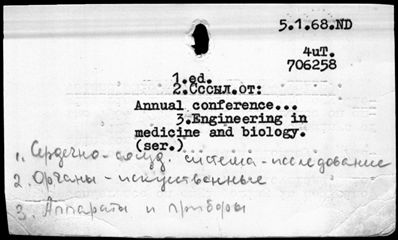 5.1.68.ND
4uT.
706258
1.ed.
2.Сссыл.от:
Annual conference...
3.Engineering in
medicine and biology.
(ser.)
1. Сердечно-сосуд. система-исследование
2. Органы-искуственные
3. Аппараты и приборы